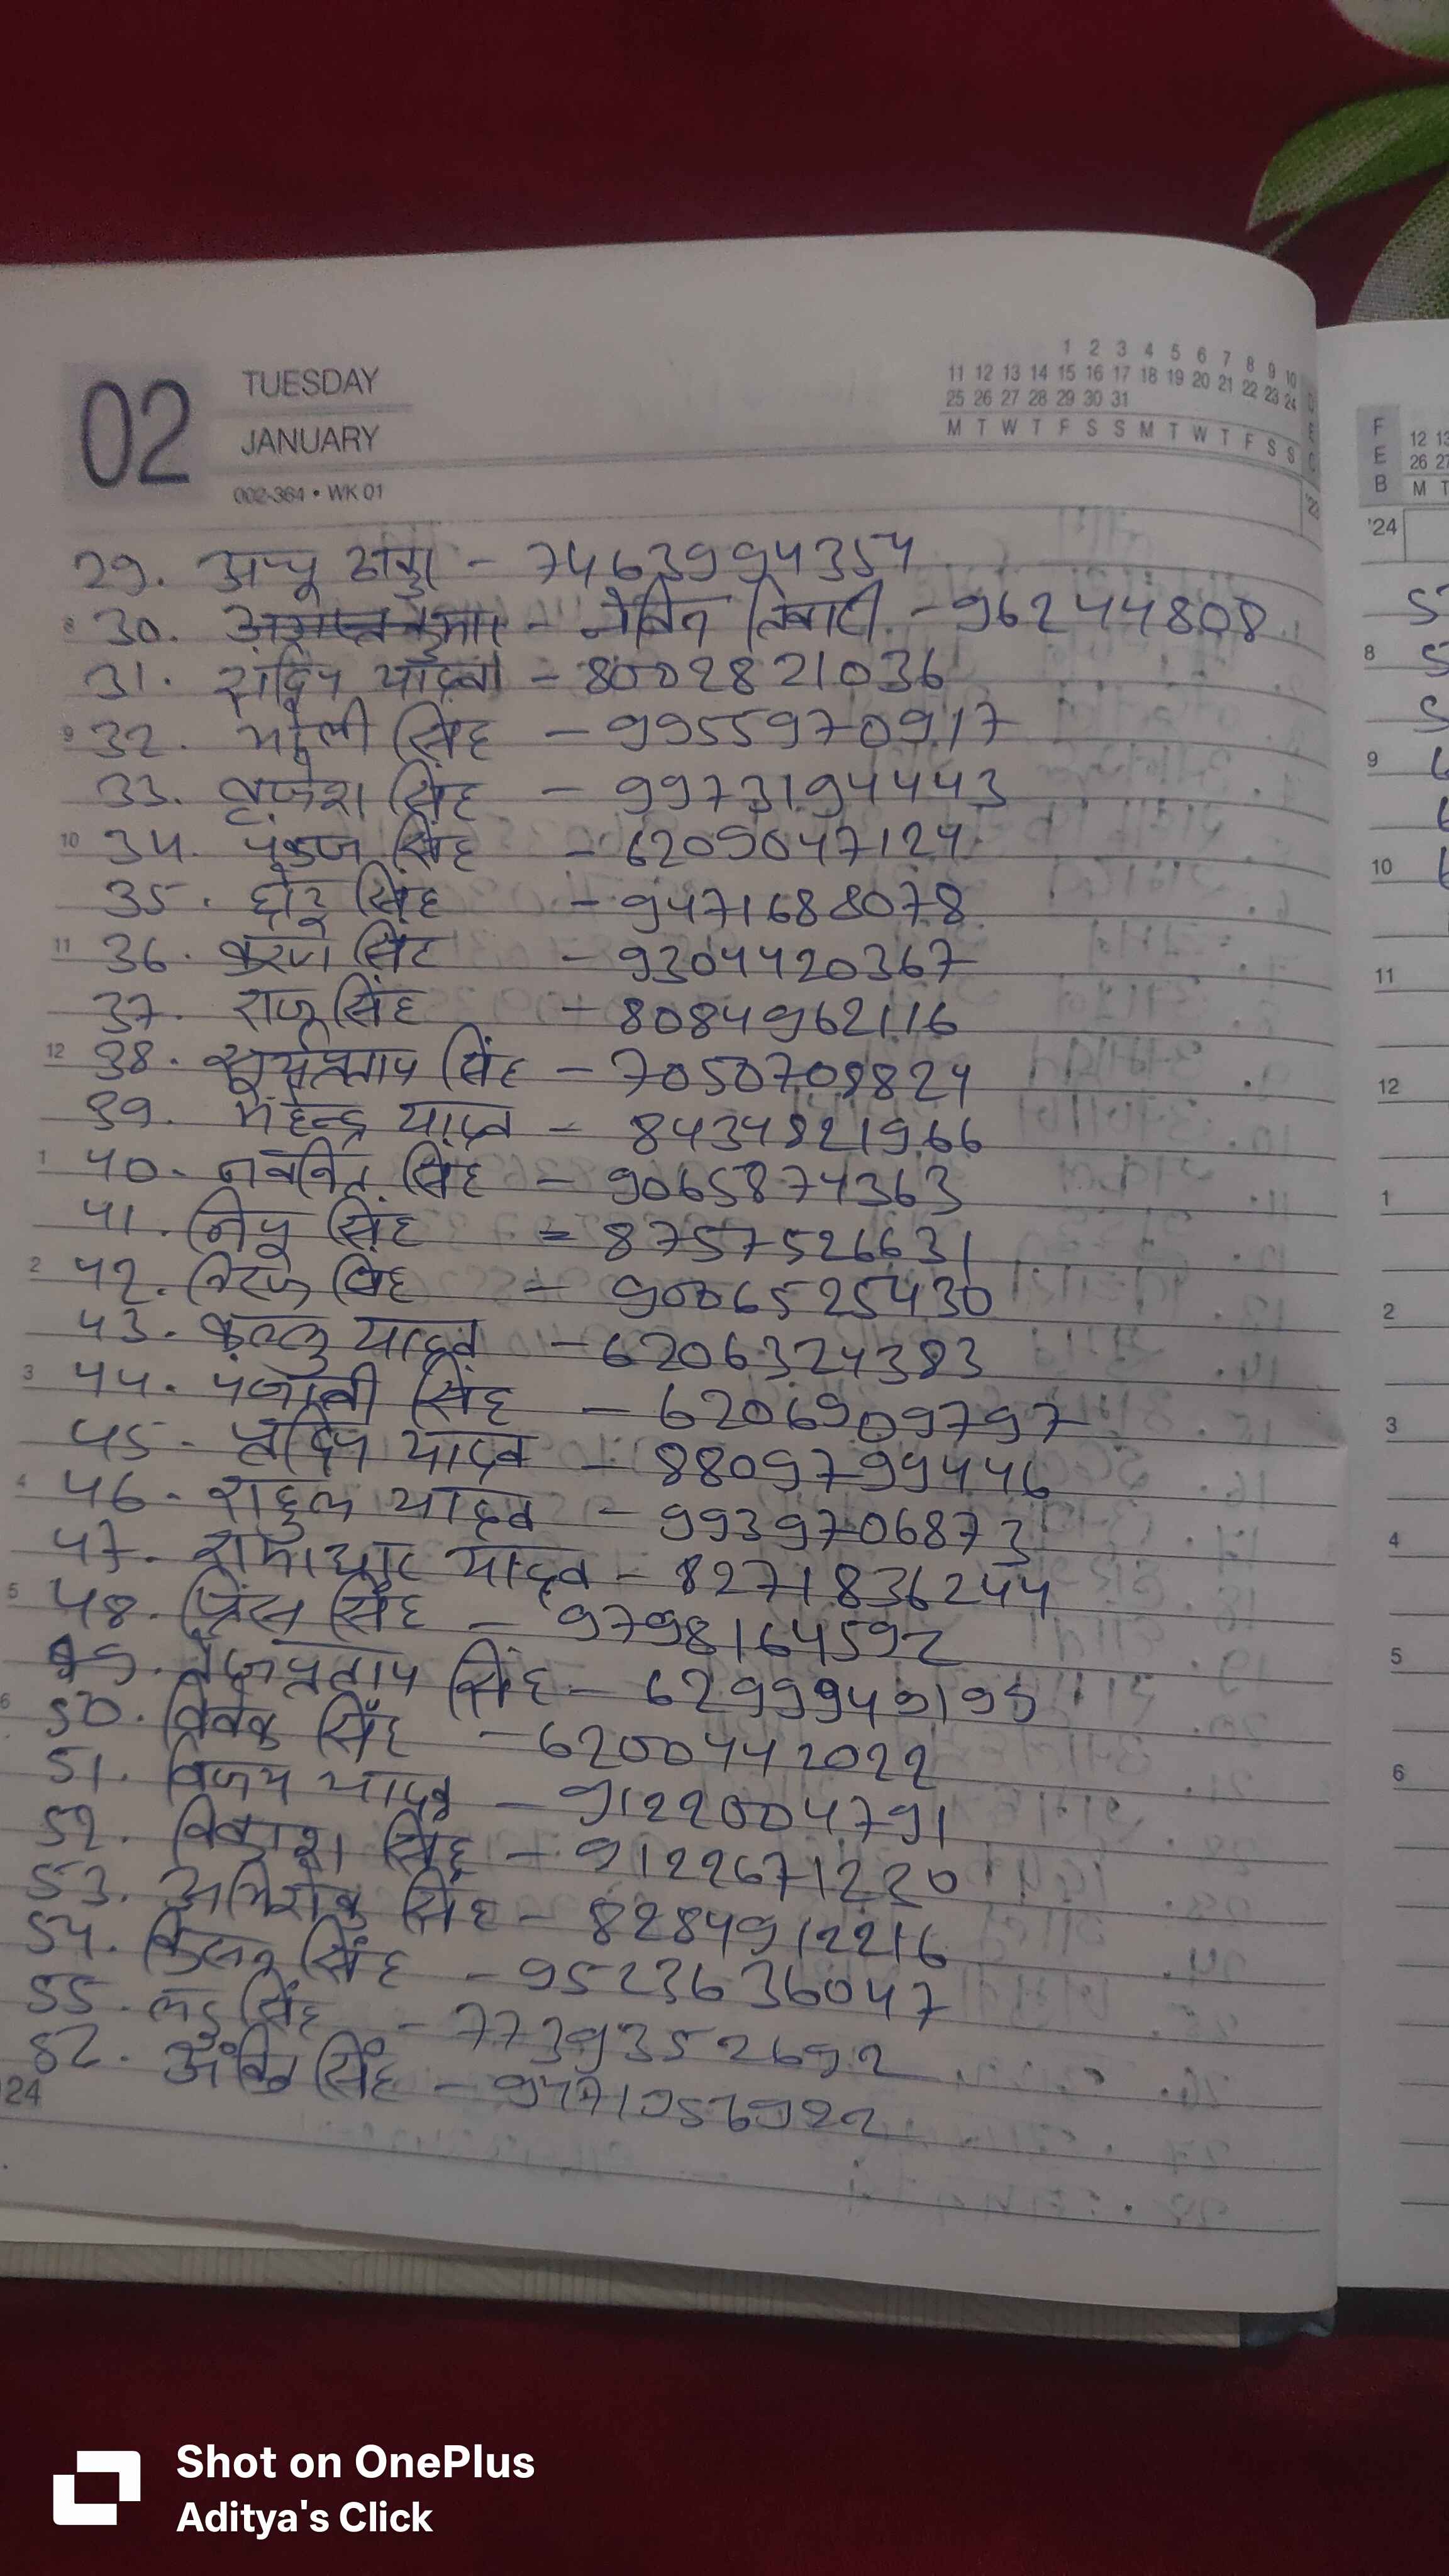 02
TUESDAY
JANUARY
002-364 • WK 01
1 2 3 4 5 6 7 8 9 10
11 12 13 14 15 16 17 18 19 20 21 22 23 24
25 26 27 28 29 30 31
M T W T F S S M T W T F S S
29. अन्पू ठाकुर - 7463994354
30. नोवित तिवारी - 96244808
31. संदिप यादव - 8002821036
32. सिंह - 9955970917
33. बृजेश सिंह - 9973194443
34. पंकज सिंह - 6209047124
35. छोटू सिंह - 9471688078
36. करण सिंह - 9304420367
37. राजू सिंह - 8084962116
38. सूर्यप्रताप सिंह - 7050709824
39. महेन्द्र यादव - 8434821966
40. नवनित सिंह - 9065874363
41. निपू सिंह = 8757526631
42. निरज सिंह - 9006525430
43. कल्लु यादव - 6206324383
44. पंजाबी सिंह - 6206909797
45 - प्रदिप यादव - 8809799446
46 - राहुल यादव - 9939706873
47. रामाधार यादव - 8271836244
48. प्रिंस सिंह - 9798164592
49. तेजप्रताप सिंह - 6299949195
50. विवेक सिंह - 6200442022
51. विजय यादव - 9122004791
52. विकाश सिंह - 9122671220
53. अभिषेक सिंह - 8284912216
54. सिंह - 9523636047
55. लड्डु सिंह - 7739352692
52. अंकित सिंह - 9471056922
24
F E B
12 13
26 27
M T
'24
8
9
10
11
12
1
2
3
4
5
6
Shot on OnePlus
Aditya's Click